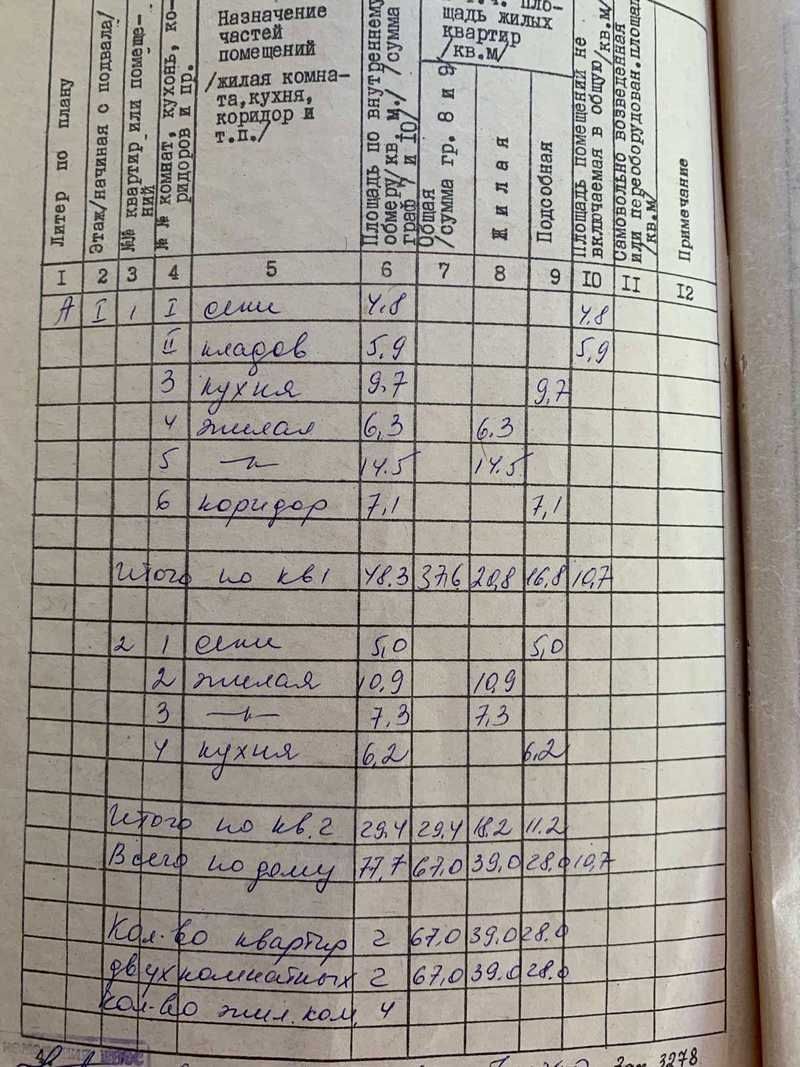 Литер по плану
Этаж/начиная с подвала/
№№ квартир или помеще-
ний
№ № комнат, кухонь, ко-
ридоров и пр.
Назначение
частей
помещений
/жилая комна-
та,кухня,
коридор и
т.п./
Площадь по внутреннему
обмеру/кв.м./ /сумма
граф 7 и 10/
щадь жилых
квартир
/кв.м/
Общая
/сумма гр. 8 и 9/
Жилая
Подсобная
Площадь помещений не
включаемая в общую/кв.м/
Самовольно возведенная
или переоборудован.площадь
/кв.м/
Примечание
I 2 3 4 5 6 7 8 9 IO II I2
А I 1 I сени 4.8 4.8
II кладов 5,9 5,9
3 кухня 9,7 9,7
4 жилая 6,3 6.3
5 —"— 14.5 14.5
6 коридор 7,1 7,1
Итого по кв1 48.3 37,6 20,8 16,8 10,7
2 1 сени 5,0 5,0
2 жилая 10,9 10,9
3 —"— 7,3 7,3
4 кухня 6,2 6,2
Итого по кв.2 29,4 29,4 18.2 11.2
Всего по дому 77,7 67,0 39,0 28.0 10,7
Кол-во квартир 2 67,0 39,0 28.0
двухкомнатных 2 67,0 39.0 28.0
кол-во жил.ком. 4
3278